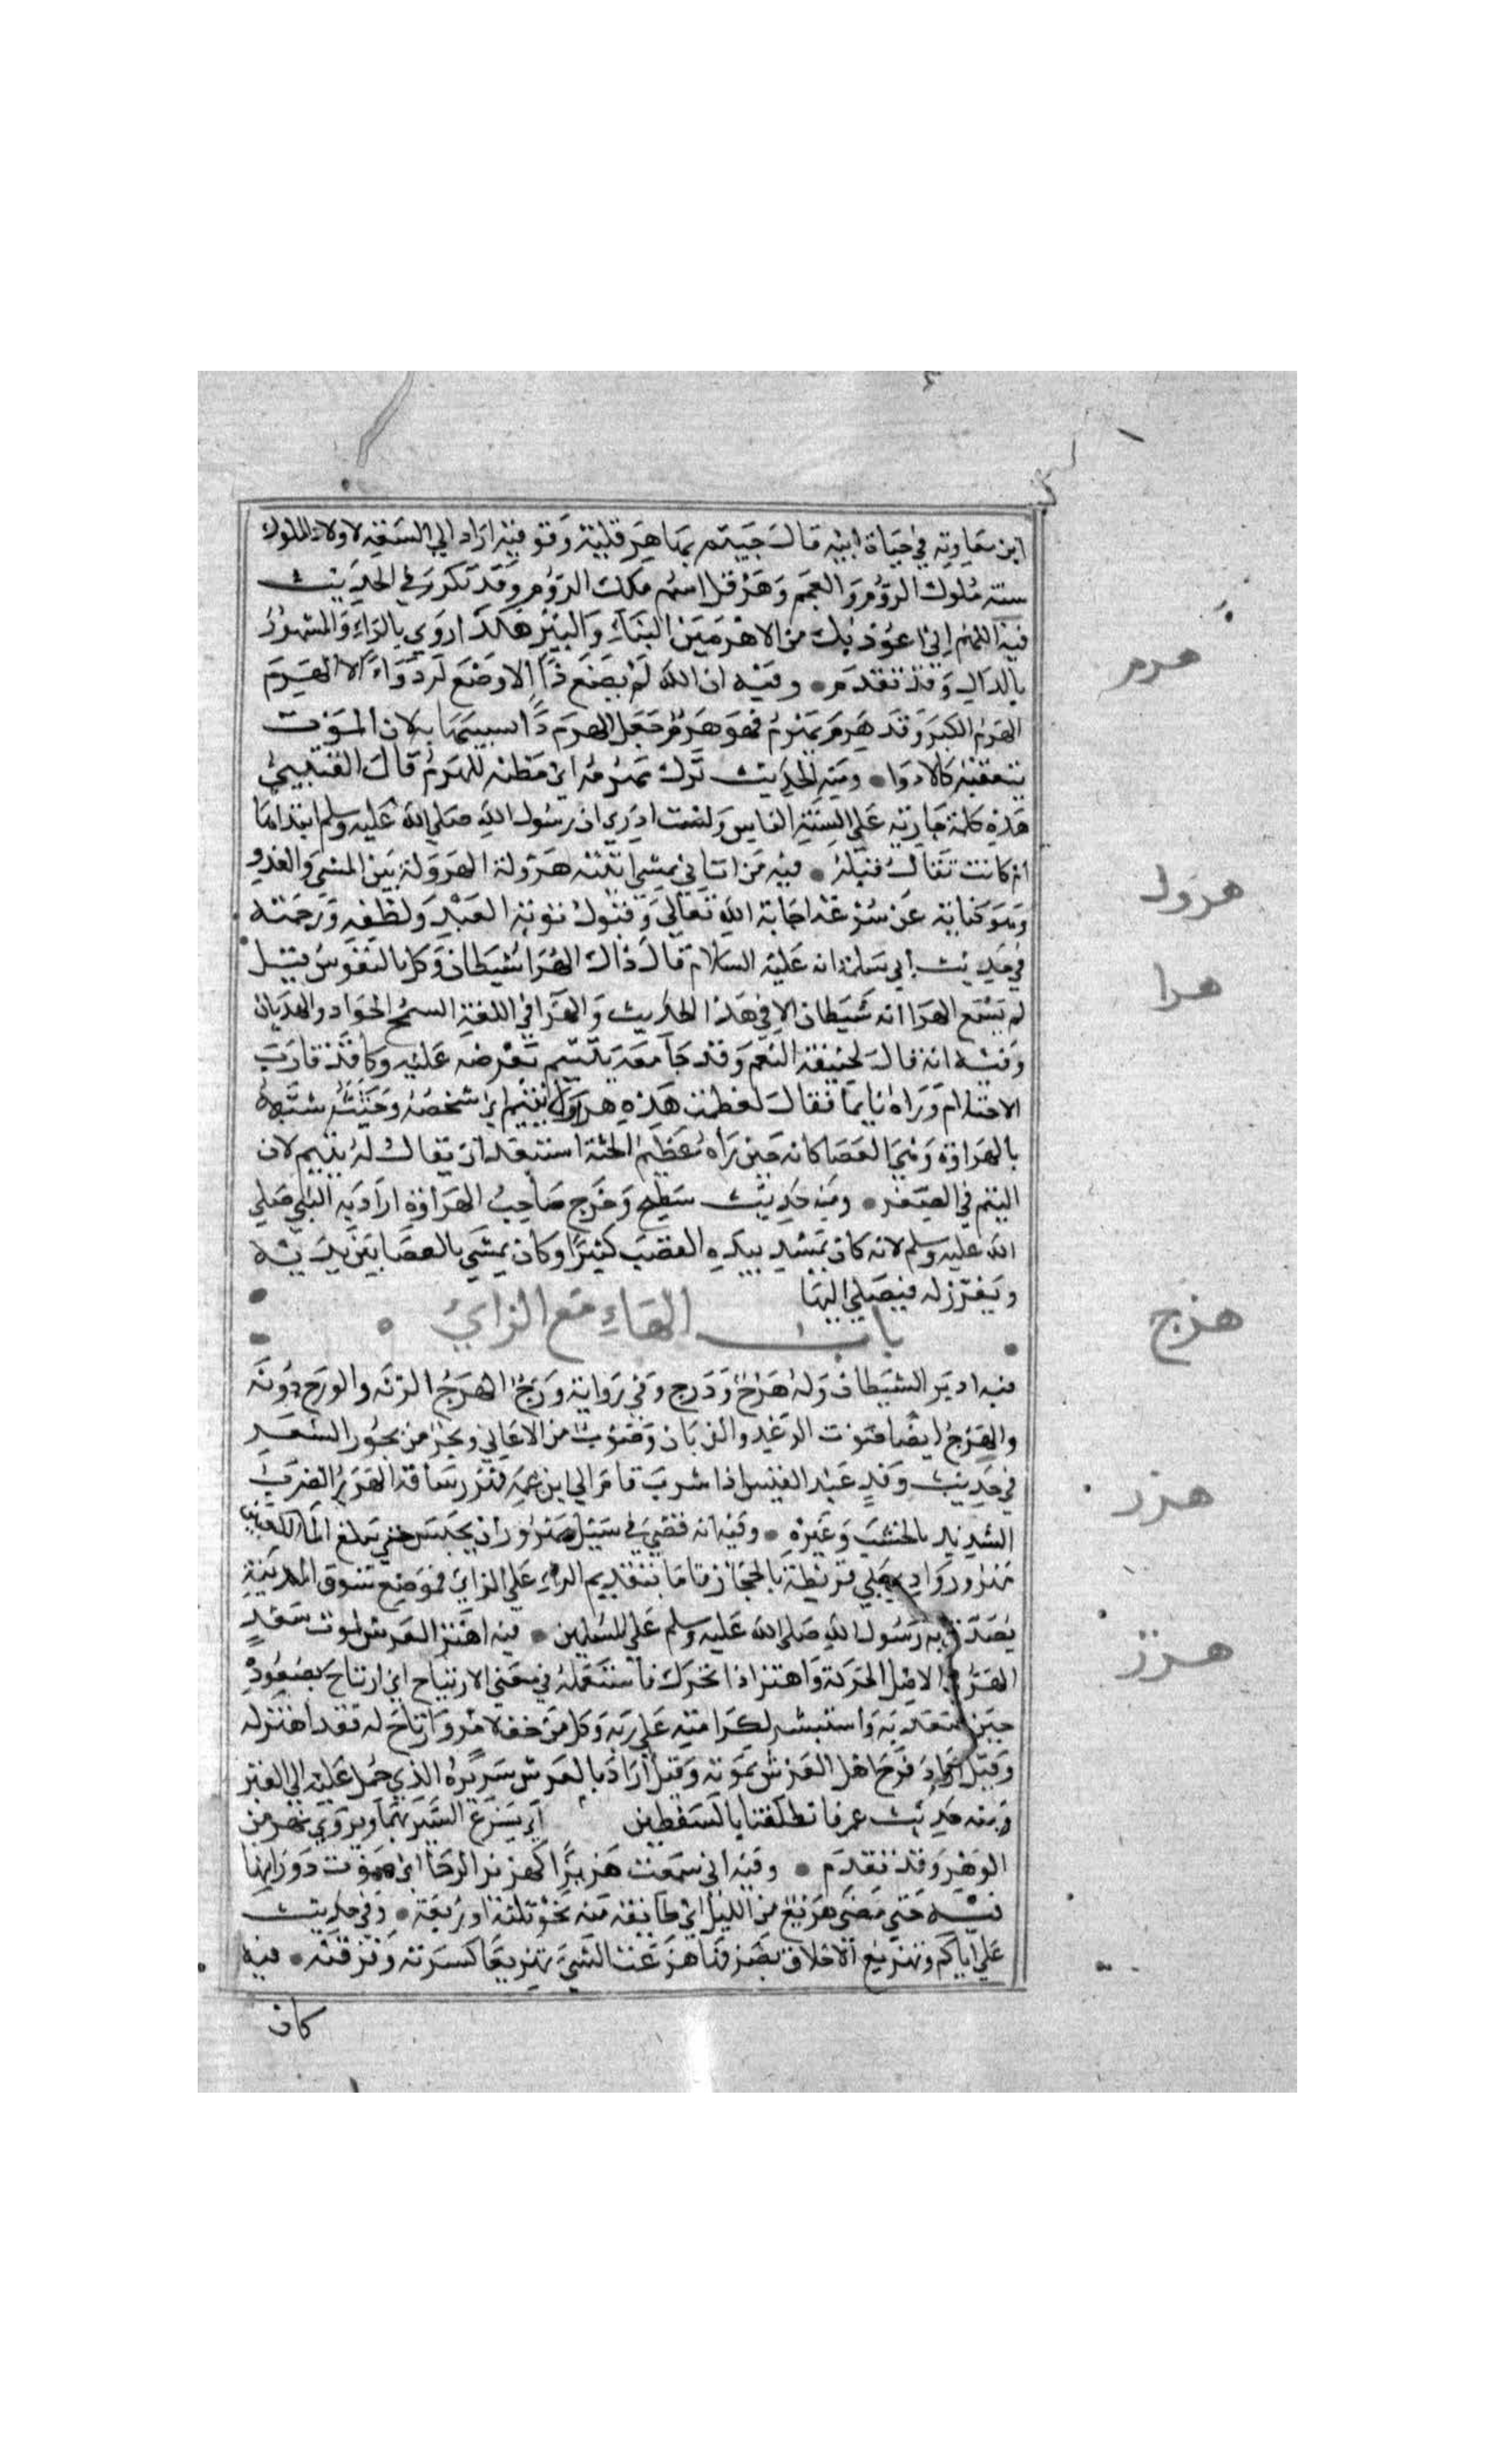 ابن معاوية في حياة ابيه قال جيتم بها هرقلية وقوقية اراد ان البيعة لاولاد الملوك
سنة ملوك الروم والعجم وهرقل اسم ملك الروم وقد تكرر في الحديث
هرم
فيه اللهم اني اعوذ بك من الاهرمين البناء والبير هكذا روي بالراء والمشهور
بالدال وقد تقدم • وفيه ان الله لم يضع داء الا وضع له دواء الا الهرم
الهرم الكبر وقد هرم يهرم فهو هرم جعل الهرم داء تشبيها به لان الموت
يتعقبه كالادوا • ومنه الحديث ترك العشاء مهرمة اي مظنة للهرم قال القتيبي
هذه كلمة جارية على السنة الناس ولست ادري ان رسول الله صلى الله عليه وسلم ابتداها
هرول
ام كانت تقال قبله • فيه من اتاني يمشي اتيته هرولة الهرولة بين المشي والعدو
وهو كناية عن سرعة اجابة الله تعالى وقبول توبة العبد ولطفه ورحمته
هرا
في حديث ابي سلمة انه عليه السلام قال ذاك الهرا شيطان وكل بالنفوس قيل
لم يسمع الهرا انه شيطان الا في هذا الحديث والهرا في اللغة السمح الجواد والهذيان
وفيه انه قال لحنيفة النعم وقد جا معه يتيم يعرضه عليه وكان قد قارب
الاحتلام وراه نايما فقال لعظمت هذه هراوة يتيم اي شخصه وجثته شبهه
بالهراوة وهي العصا كانه حين راه عظيم الجثة استبعد ان يقال له يتيم لان
اليتم في الصغر • ومنه حديث سطيح وخرج صاحب الهراوة اراد به النبي صلى
الله عليه وسلم لانه كان يمسك بيده القضيب كثيرا وكان يمشي بالعصا بين يديه
وتغرز له فيصلي اليها
باب الهاء مع الزاي
هزج
فيه ادبر الشيطان وله هزج ودزج وفي رواية وزج الهزج الرنة والوزج دونه
والهزج ايضا صوت الرعد والذبان وضرب من الاغاني وبحر من بحور الشعر
هزر
في حديث وفد عبد القيس اذا شرب قام الى ابن عمه فهزر ساقه الهزر الضرب
الشديد بالخشب وغيره • وفيه انه قضى في سيل مهزور ان يحبس حتى يبلغ الماء الكعبين
مهزور وادي بني قريظة بالحجاز فاما بتقديم الراء على الزاي فموضع سوق المدينة
هزز
تصدق به رسول الله صلى الله عليه وسلم على المسلمين • فيه اهتز العرش لموت سعد
الهز في الاصل الحركة واهتز اذا تحرك فاستعمله في معنى الارتياح اي ارتاح بصعوده
حين صعد به واستبشر لكرامته على ربه وكل من خف لامر وارتاح له فقد اهتز له
وقيل اراد فرح اهل العرش بموته وقيل اراد بالعرش سريره الذي حمل عليه الى القبر
ومنه حديث عمر فانطلقنا بالسفطين اي نسرع السير بهما ويروى نهز من
الوهز وقد تقدم • وفيه اني سمعت هزيزا كهزيز الرحا اي صوت دورانها
فيه حتى مضى هزيع من الليل اي طايفة منه نحو ثلثه او ربعه • وفي حديث
علي اياكم وتهزيع الاخلاق وتصرفها هزعت الشي تهزيعا كسرته وفرقته • فيه
كان